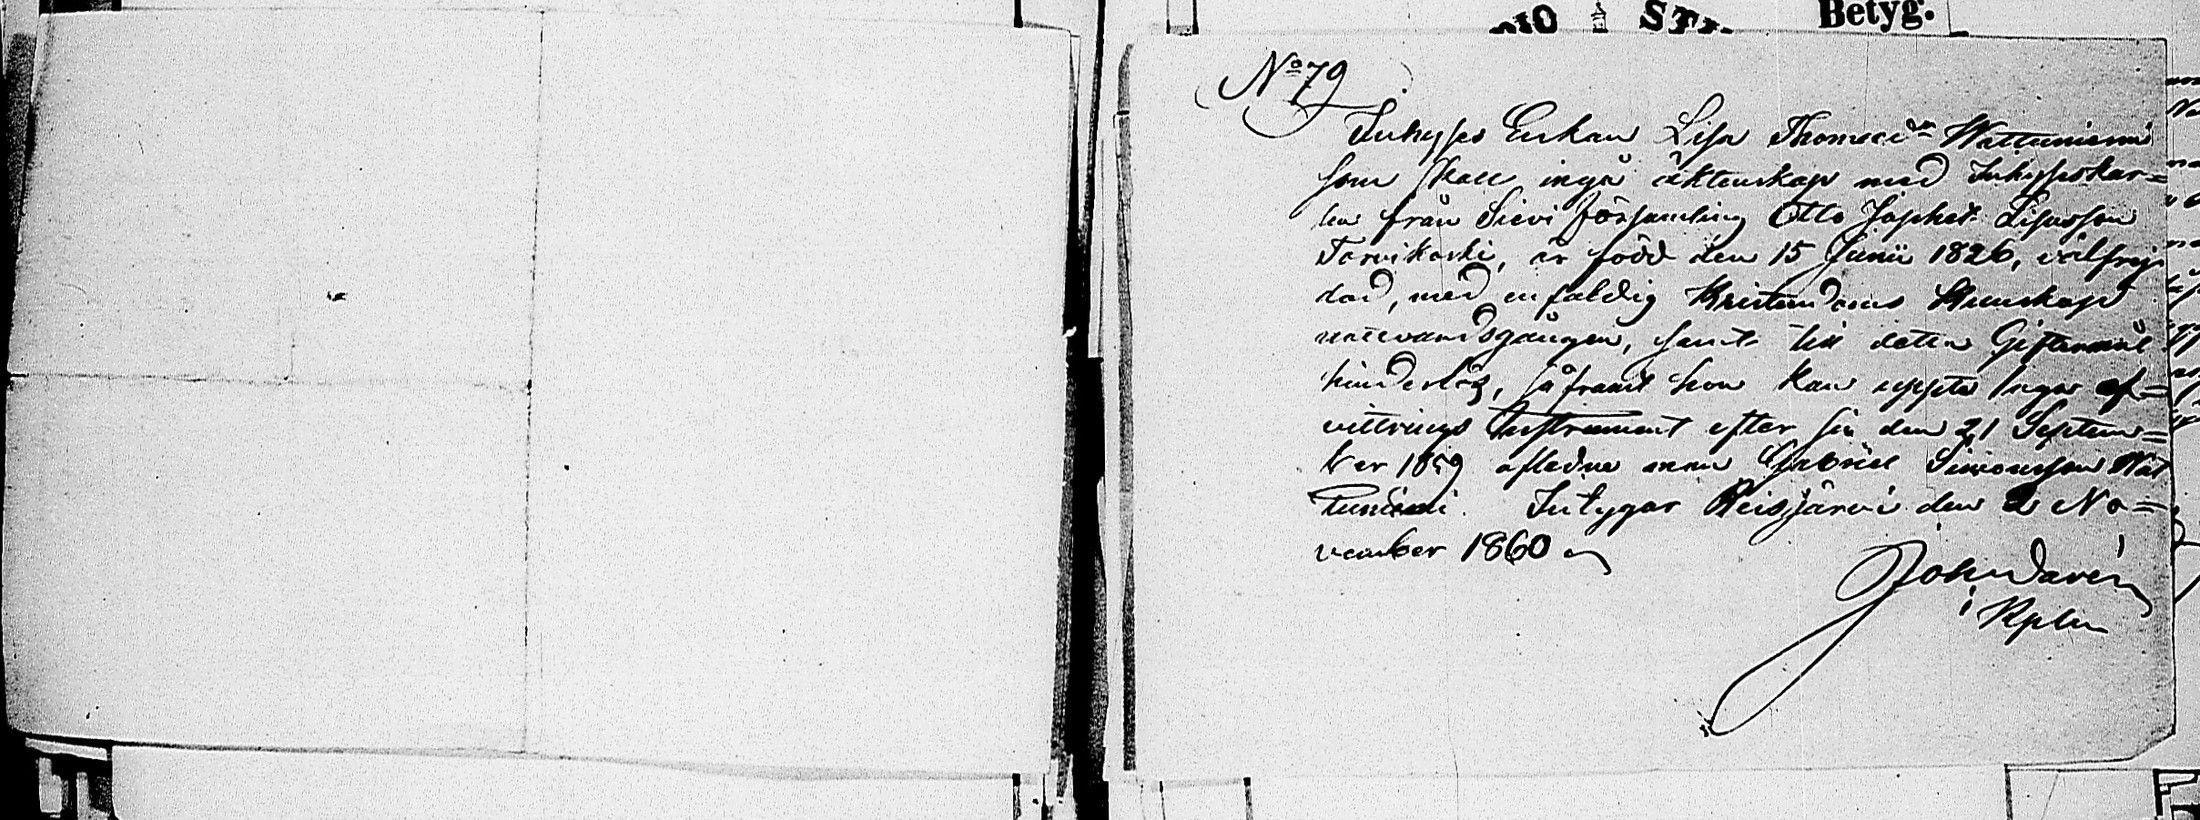 Betyg.
No 79
Inhyses Enkan Lisa Thomaedr Wattuniemi
som skall ingå äktenskap med Inhyseskar=
len från Sievi församling Otto Japhet Lisasson
Torvikoski, är född den 15 Junii 1826, välfrej
dad, med enfaldig Kristendoms Kunskap
nattvardsgången, samt till detta Giftermål
hinderlös, såframt hon kan uppte laga af=
vittrings Instrument efter sin den 21 Septem=
ber 1859 aflidne man Gabriel Simonsson Wat
tuniemi. Intygar Reisjärvi den 2 No=
vember 1860
Joh
Kpln